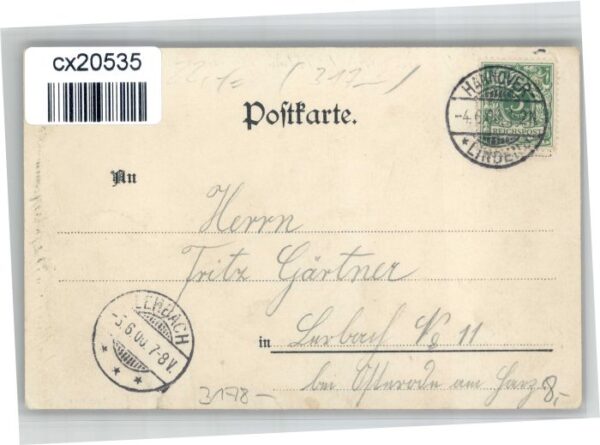 cx20535
( 317,- )
Postkarte.
HANNOVER
-4.6.00
*LINDEN
REICHSPOST
An
Herrn
Fritz Gärtner
in Lerbach No 11
bei Osterode am Harz
LERBACH
-5.6.00.7-8V.
* * *
3178-
8,-